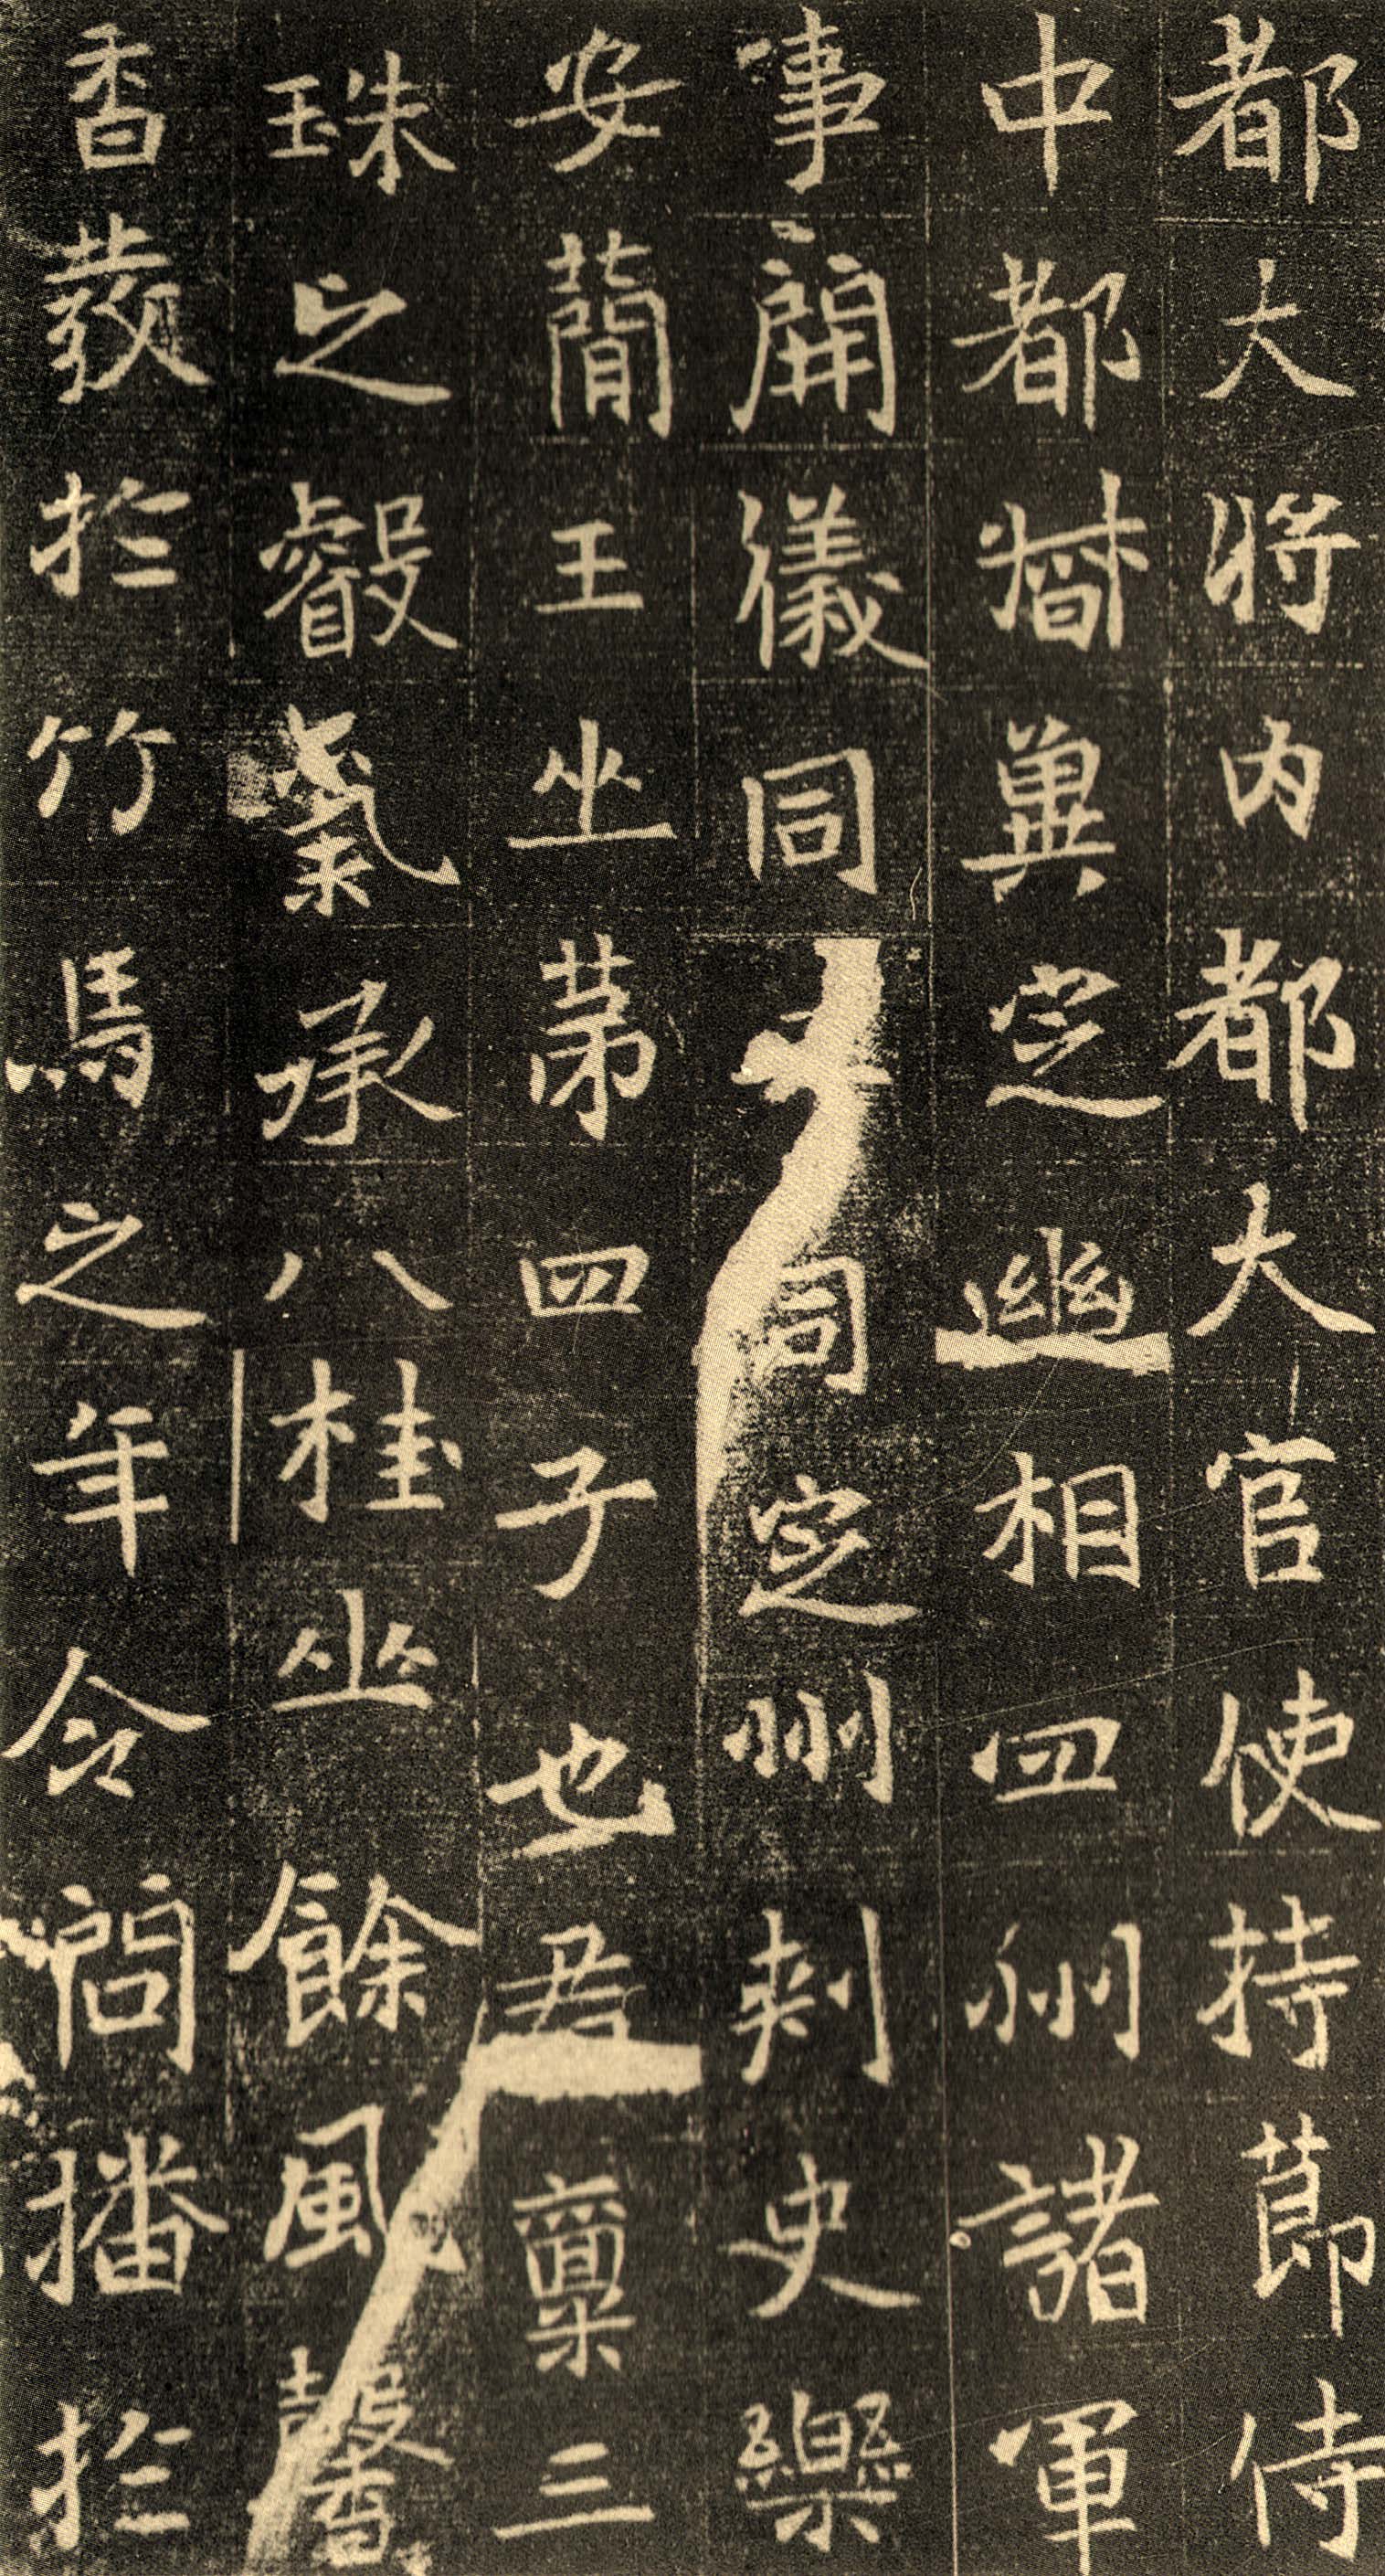 都大將內都大官使持節侍
中都督冀定幽相四州諸軍
事開儀同三司定州刺史樂
安簡王之第四子也君稟三
珠之叡氣承八桂之餘風馨
香發於竹馬之年令問播於